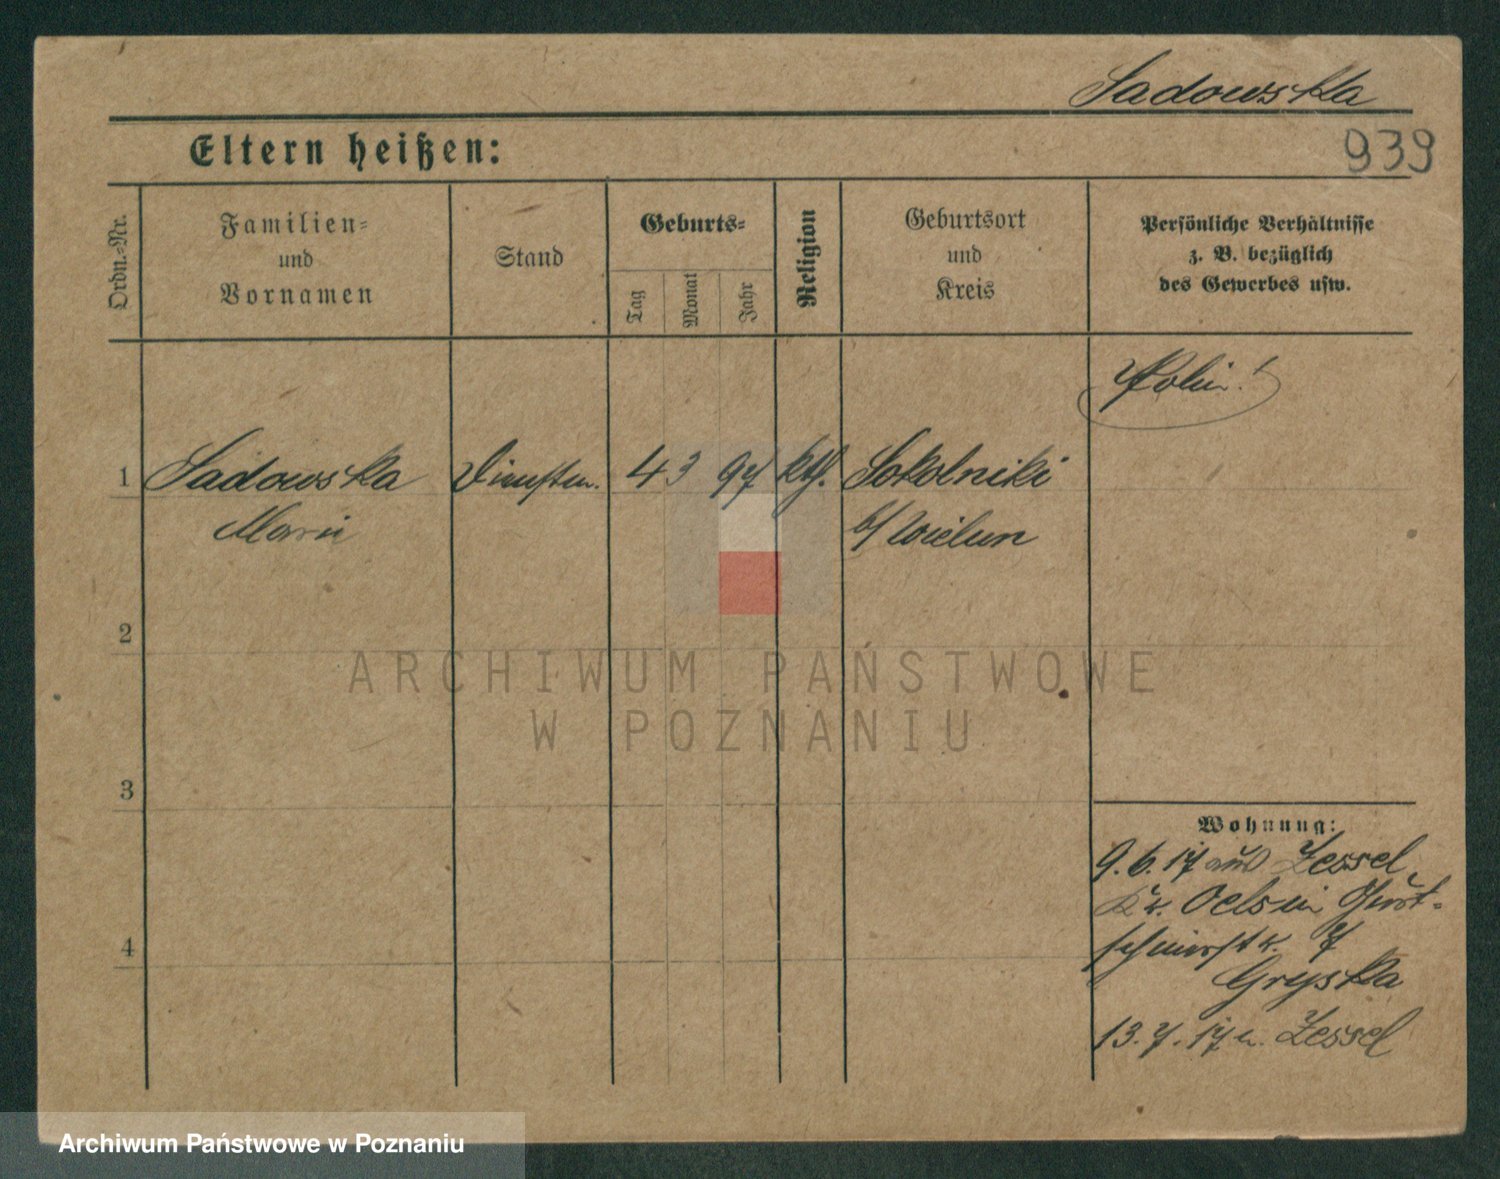 Sadowska
939
Eltern heißen:
Ordn.-Nr.
Familien-
und
Vornamen
Stand
Geburts-
Tag
Monat
Jahr
Religion
Geburtsort
und
Kreis
Persönliche Verhältnisse
z. B. bezüglich
des Gewerbes usw.
Polin!
1 Sadowska Dienstm. 4 3 97 kth. Sokolniki
Marie b/ Wielun
2
3
4
Wohnung:
9.6.17 aus Zessel
Kr. Oels in
7
Gryska
13.7.17 n. Zessel
ARCHIWUM PAŃSTWOWE
W POZNANIU
Archiwum Państwowe w Poznaniu